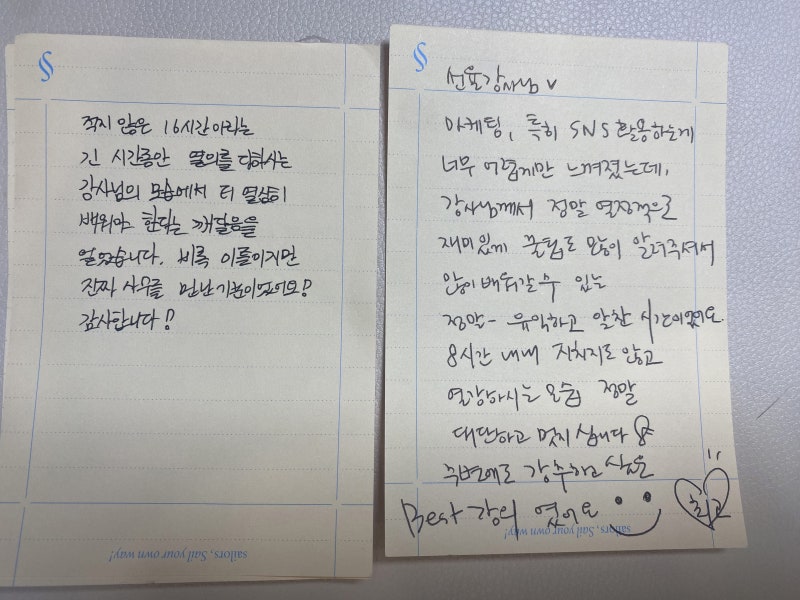 적지 않은 16시간이라는
긴 시간동안 열의를 다하시는
강사님의 모습에서 더 열심히
배워야 한다는 깨달음을
얻었습니다. 비록 이틀이지만
진짜 사부를 만난 기분이었어요!
감사합니다!
선율강사님♥
마케팅, 특히 SNS 활용하는게
너무 어렵게만 느껴졌는데,
강사님께서 정말 열정적으로
재미있게 꿀팁도 많이 알려주셔서
많이 배워갈 수 있는
정말~ 유익하고 알찬 시간이었어요.
8시간 내내 지치지도 않고
열강하시는 모습 정말
대단하고 멋지십니다
주변에도 강추하고 싶은
Best 강의 였어요
최고
sailors, Sail your own way!
sailors, Sail your own way!